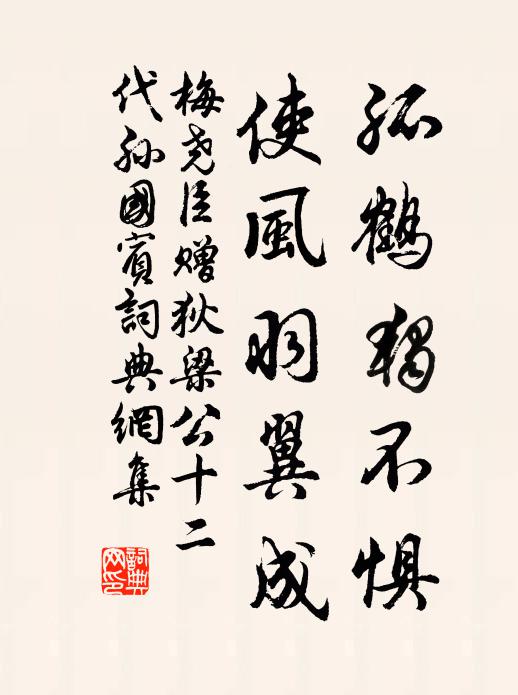 孤鶴獨不懼
使風羽翼成
梅堯臣贈狄梁公十二
代孫國賓詞典網集
詞典
网印